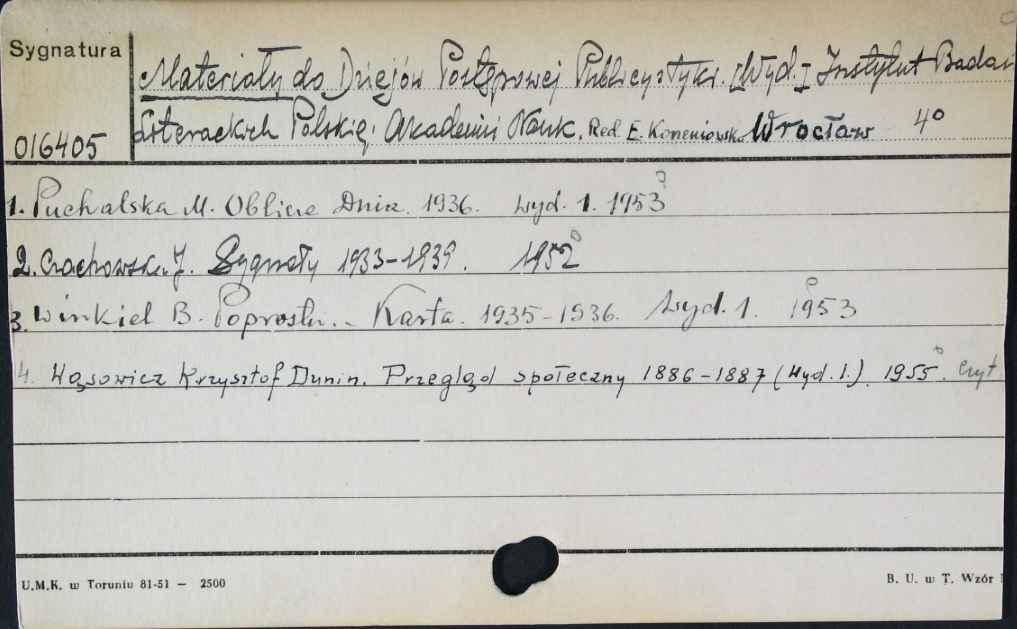 Sygnatura
Materiały do Dziejów Postępowej Publicystyki. [Wyd.] Instytut Badań
Literackich Polskiej Akademii Nauk. Red. E. Korzeniewska Wrocław 4°
016405
1. Puchalska M. Oblicze Dnia. 1936. wyd. 1. 1953
2. Czachowska J. Sygnały 1933-1939. 1952
3. Winkiel B. Poprostu. - Karta. 1935-1936. Wyd. 1. 1953
4. Wąsowicz Krzysztof Dunin. Przegląd społeczny 1886-1887 (Wyd. 1.). 1955. Czyt.
U.M.K. w Toruniu 81-51 — 2500
B. U. w T. Wzór